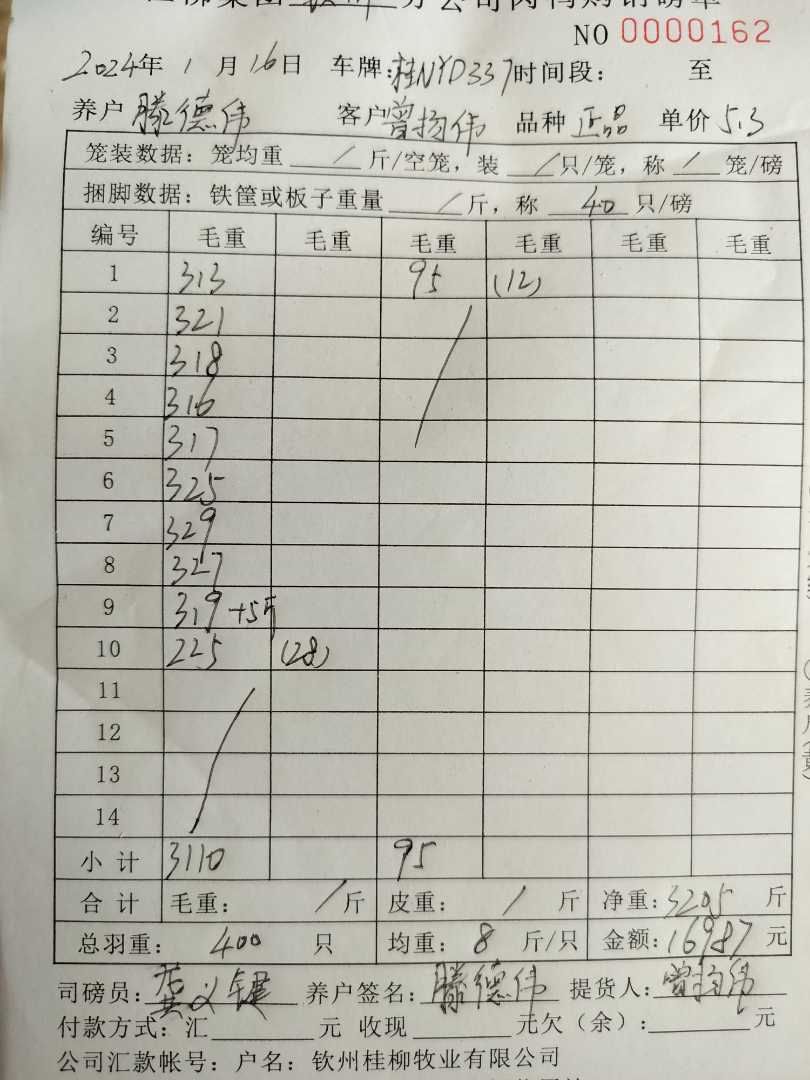 集团 分公司肉鸭购销磅单
NO 0000162
2024年 1 月 16日 车牌:桂NYD337 时间段: 至
养户 滕德伟 客户 曾扬伟 品种 正品 单价 5.3
笼装数据: 笼均重 / 斤/空笼, 装 / 只/笼, 称 / 笼/磅
捆脚数据: 铁筐或板子重量 / 斤, 称 40 只/磅
编号 毛重 毛重 毛重 毛重 毛重 毛重
1 313 95 (12)
2 321
3 318
4 316
5 317
6 325
7 329
8 327
9 319 +5斤
10 225 (28)
11
12
13
14
小 计 3110 95
合 计 毛重: / 斤 皮重: / 斤 净重: 3205 斤
总羽重: 400 只 均重: 8 斤/只 金额: 16987 元
司磅员: 龚义键 养户签名: 滕德伟 提货人: 曾扬伟
付款方式: 汇 元 收现 元欠(余): 元
公司汇款帐号: 户名: 钦州桂柳牧业有限公司